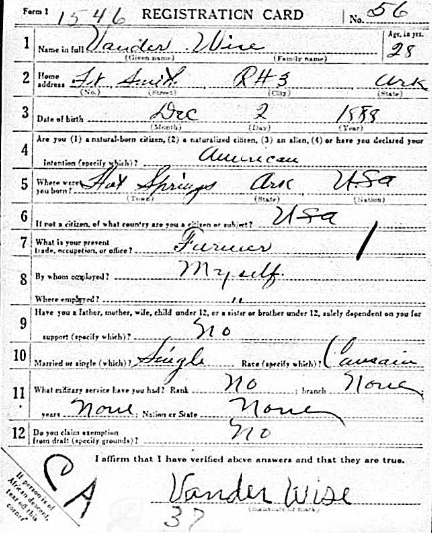 Form 1 1546 REGISTRATION CARD No. 56
1 Name in full Vander Wise Age, in yrs. 28
(Given name) (Family name)
2 Home address Ft Smith R#3 Ark
(No.) (Street) (City) (State)
3 Date of birth Dec 2 1888
(Month) (Day) (Year)
4 Are you (1) a natural-born citizen, (2) a naturalized citizen, (3) an alien, (4) or have you declared your
intention (specify which)? American
5 Where were you born? Hot Springs Ark USA
(Town) (State) (Nation)
6 If not a citizen, of what country are you a citizen or subject? USA
7 What is your present trade, occupation, or office? Farmer
8 By whom employed? Myself.
Where employed? "
9 Have you a father, mother, wife, child under 12, or a sister or brother under 12, solely dependent on you for
support (specify which)? No
10 Married or single (which)? Single Race (specify which)?
11 What military service have you had? Rank No ; branch None
years None ; Nation or State None
12 Do you claim exemption from draft (specify grounds)? No
I affirm that I have verified above answers and that they are true.
Vander Wise
(Signature or mark)
37
CA
If person is of African descent, tear off this corner